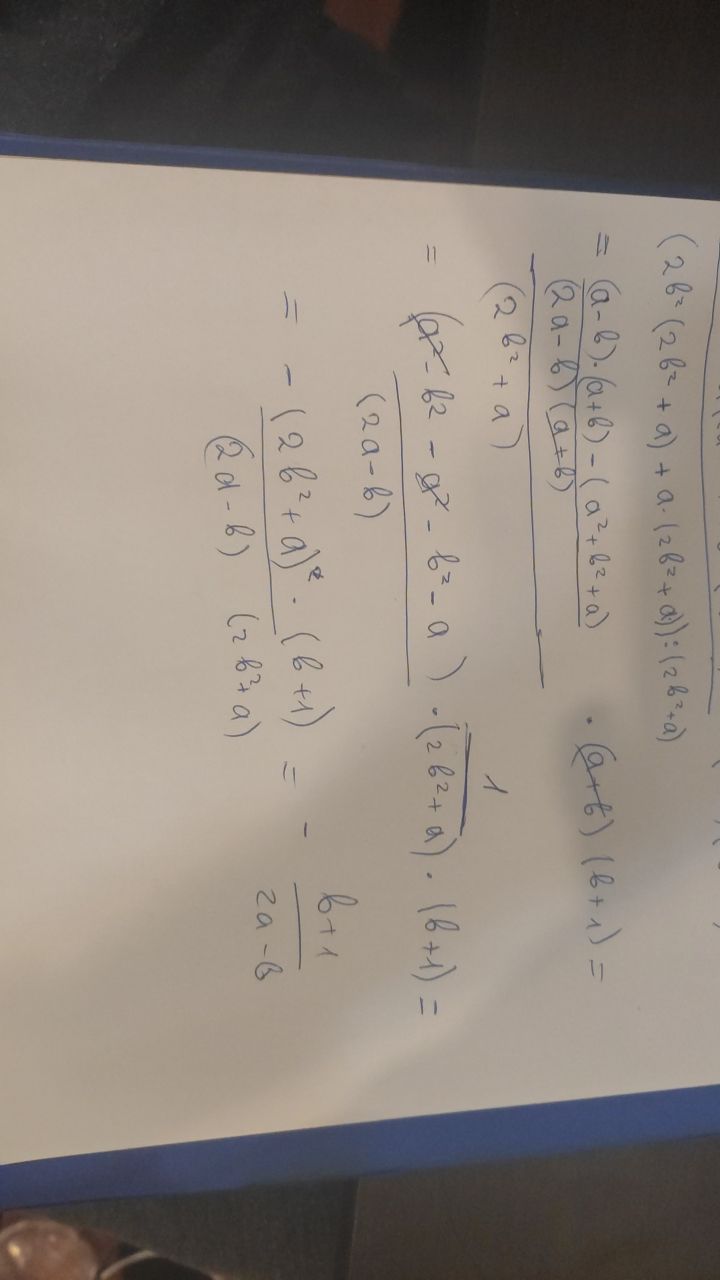 (2b² (2b² + a) + a · (2b² + a)) : (2b² + a)
= (a-b)·(a+b) - (a² + b² + a)
(2a-b)(a+b) · (a+b) (b+1) =
(2b² + a)
1
= (a² - b² - a² - b² - a) · (2b² + a) · (b+1) =
(2a-b)
= - (2b² + a) · (b+1) = - b+1
(2a-b) (2b² + a) 2a-b